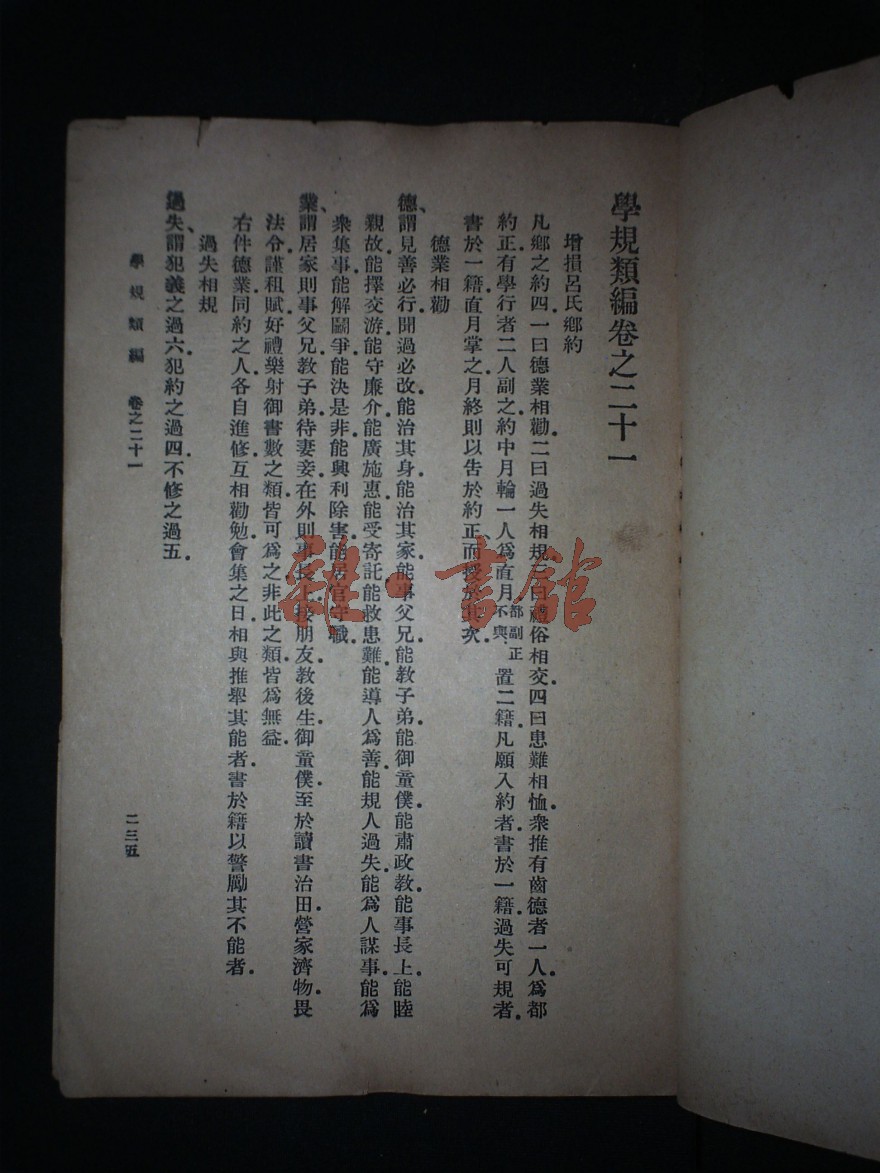 學規類編卷之二十一
增損呂氏鄉約
凡鄉之約四一曰德業相勸二曰過失相規三曰禮俗相交四曰患難相恤衆推有齒德者一人爲都
約正有學行者二人副之約中月輪一人爲直月都副正不與置二籍凡願入約者書於一籍過失可規者
書於一籍直月掌之月終則以告於約正而授於其次
德業相勸
德謂見善必行聞過必改能治其身能治其家能事父兄能教子弟能御童僕能肅政教能事長上能睦
親故能擇交游能守廉介能廣施惠能受寄託能救患難能導人爲善能規人過失能爲人謀事能爲
衆集事能解鬭爭能決是非能興利除害能居官守職
業謂居家則事父兄教子弟待妻妾在外則事長上接朋友教後生御童僕至於讀書治田營家濟物畏
法令謹租賦好禮樂射御書數之類皆可爲之非此之類皆爲無益
右件德業同約之人各自進修互相勸勉會集之日相與推舉其能者書於籍以警勵其不能者
過失相規
過失謂犯義之過六犯約之過四不修之過五
學規類編 卷之二十一 二三五
雜·書館